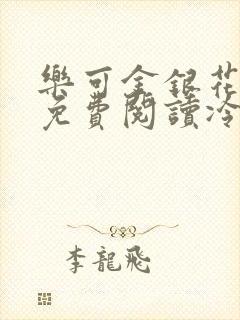 樂可金銀花
免費閱讀冷
李龍飛